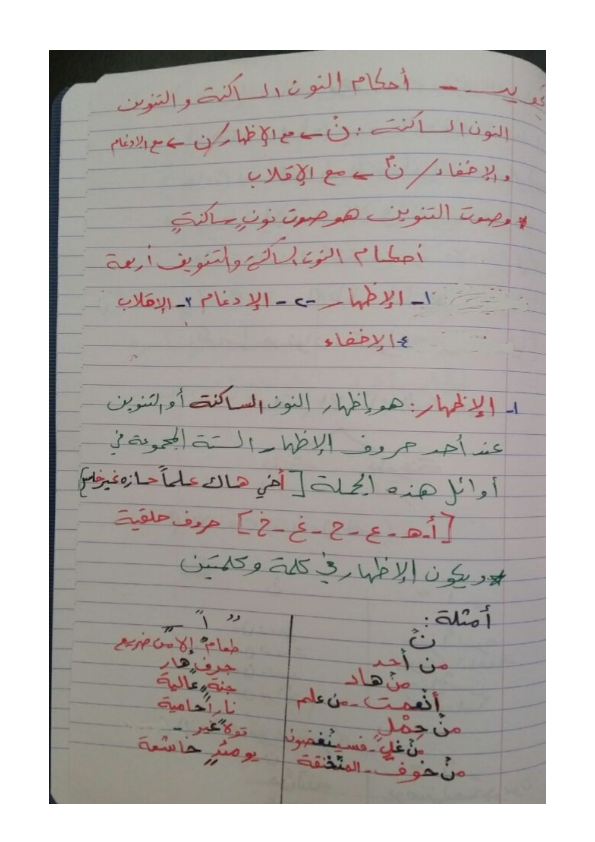 تجويد - أحكام النون الساكنة والتنوين
النون الساكنة : نْ ← مع الإظهار / ن ← مع الإدغام
والإخفاء / نۢ ← مع الإقلاب
* وصوت التنوين هو صوت نون ساكنة
أحكام النون الساكنة والتنوين أربعة
١- الإظهار ٢- الإدغام ٣- الإقلاب
٤ الإخفاء
١- الإظهار: هو إظهار النون الساكنة أو التنوين
عند أحد حروف الإظهار الستة المجموعة في
أوائل هذه الجملة [أخي هاك علماً حازه غير خاسر]
[أ - هـ - ع - ح - غ - خ] حروف حلقية
* ويكون الإظهار في كلمة وكلمتين
أمثلة:
نْ ــٌ ــً ــٍ
من أحد طعام إلا من ضريع
من هاد جرف هار
أنعمت - من علم جنة عالية
من حمل ناراً حامية
من غل - فسينغضون قولا غير -
من خوف - المنخنقة يومئذ خاشعة